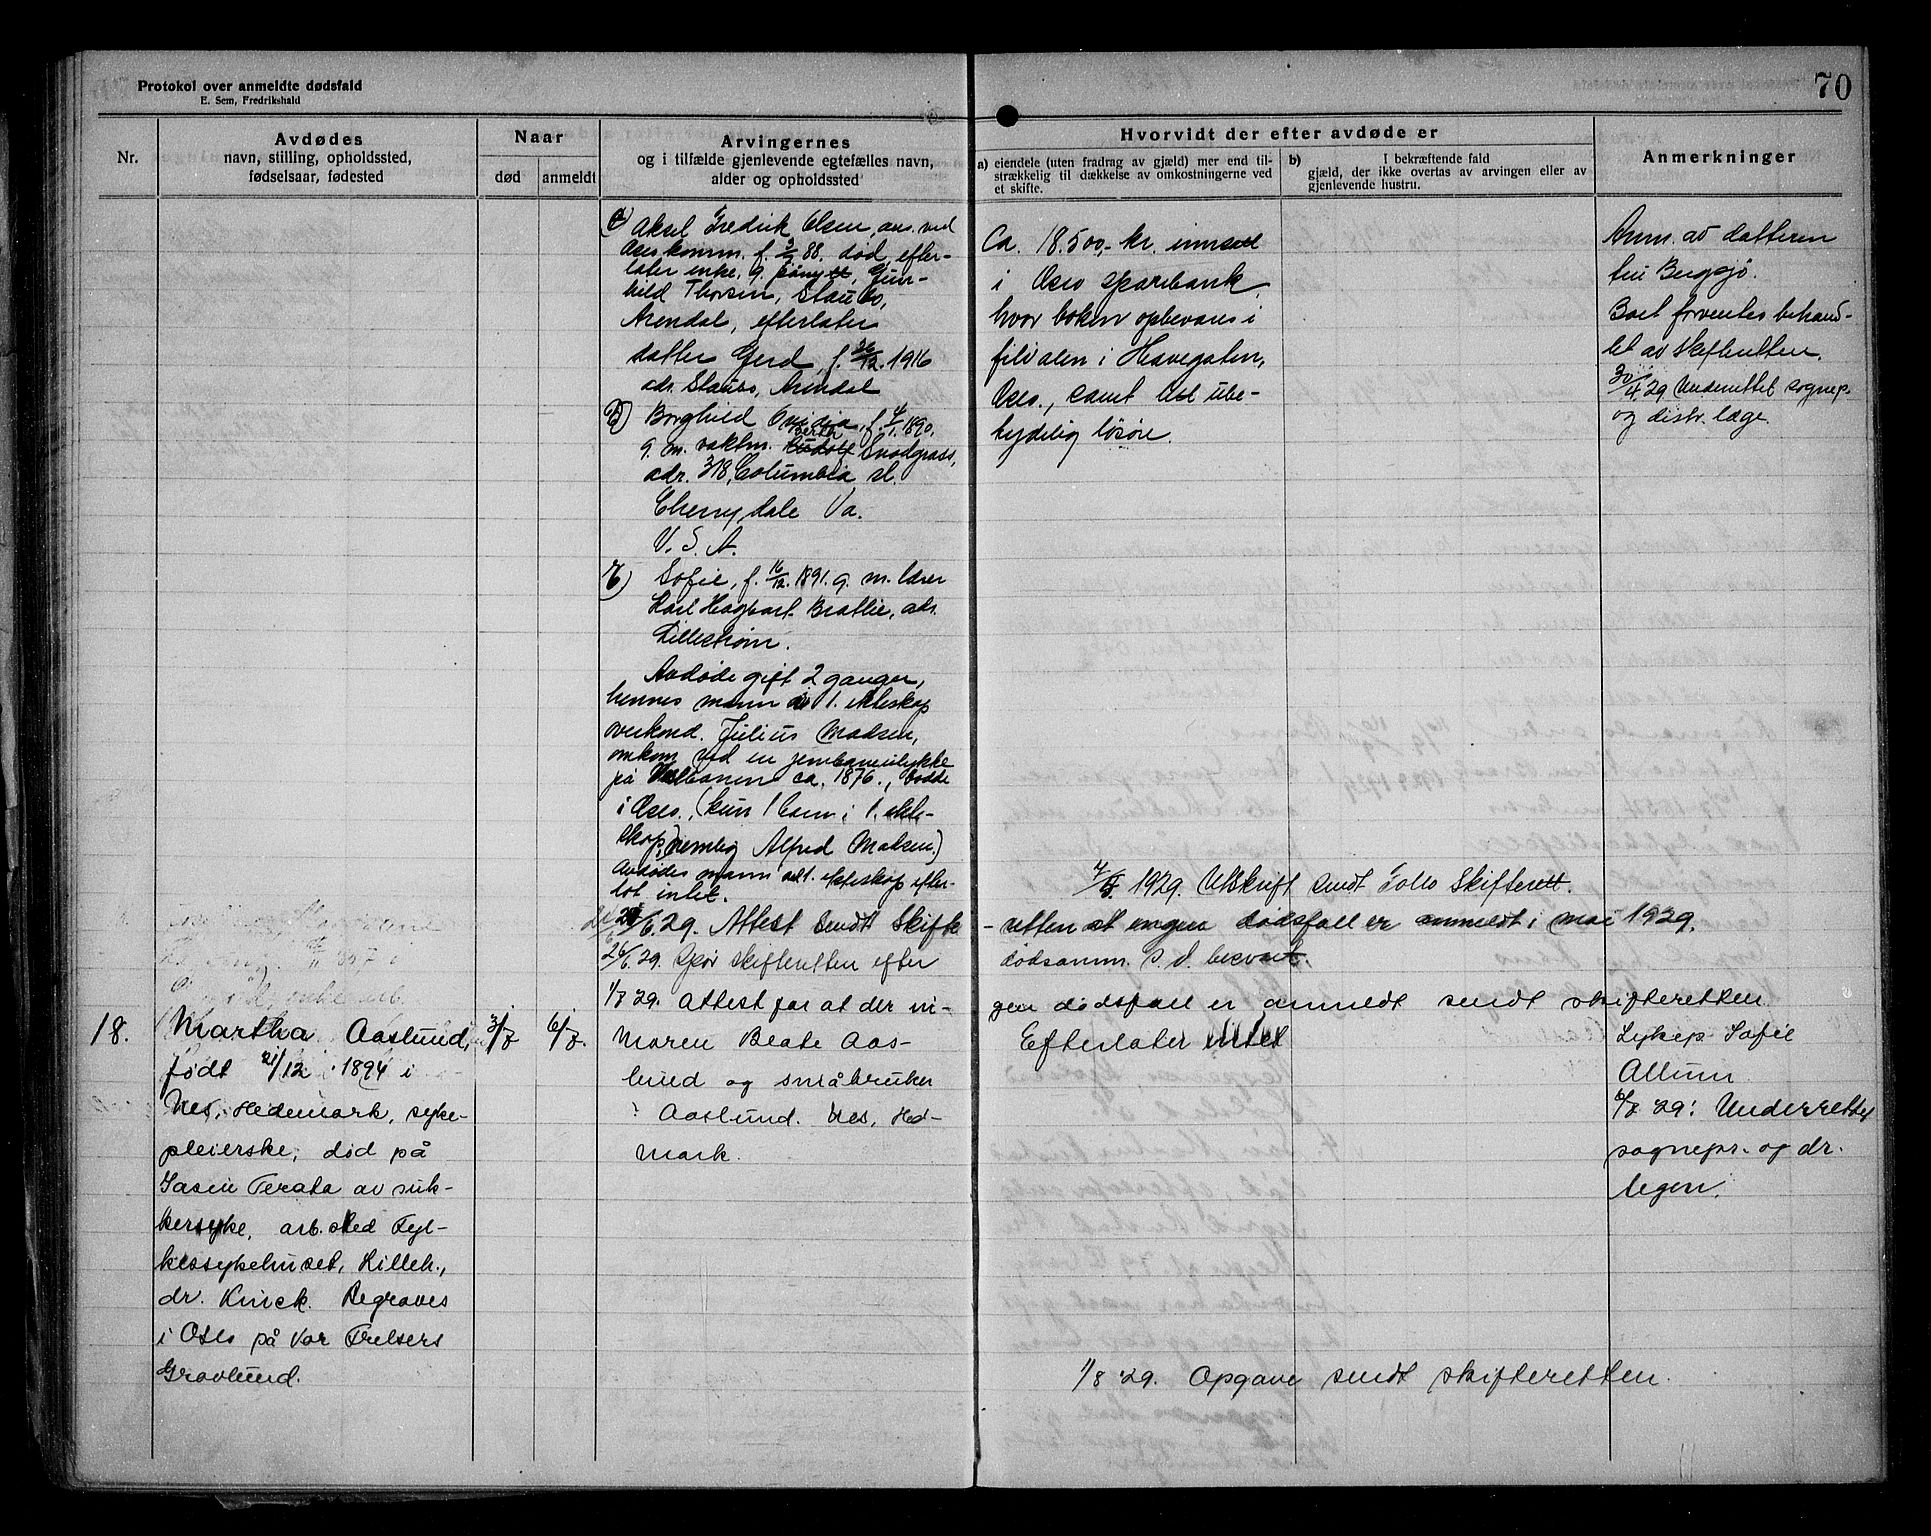 Protokol over anmeldte dødsfald
E. Sem, Fredrikshald
70
Nr.
Avdødes
navn, stilling, opholdssted,
fødselsaar, fødested
Naar
død
anmeldt
Arvingernes
og i tilfælde gjenlevende egtefælles navn,
alder og opholdssted
Hvorvidt der efter avdøde er
a) eiendele (uten fradrag av gjæld) mer end til-
strækkelig til dækkelse av omkostningerne ved
et skifte.
b) I bekræftende fald
gjæld, der ikke overtas av arvingen eller av
gjenlevende hustru.
Anmerkninger
Aksel Fredrik Olsen, ans. ved
Oslo komm. f. 88. død, efter-
later enke, g. pånytt, Gun-
hild Thorsen, Staubo,
Arendal, efterlater
datter Gerd, f. 26/12. 1916
adr. Staubo, Arendal
Borghild f. 1890,
g. m. vaktm. Snodgrass,
adr. 318, Columbia st.
Cherrydale Va.
U. S. A.
Sofie, f. 16/12. 1891. g. m. lærer
Karl Hagbart Brattlie, adr.
Lillestrøm.
Avdøde gift 2 ganger,
hennes mann i 1. ekteskap
overkond. Julius Madsen,
omkom ved en jernbaneulykke
på ca. 1876., bodde
i Oslo., (kun 1 barn i 1. ekte-
skap, nemlig Alfred Madsen.)
Avdødes mann av 1. ekteskap efter-
lot intet.
Ca. 18.500,- kr. innsatt
i Oslo sparebank,
hvor boken opbevares i
filialen i Havegaten,
Oslo., samt litt ube-
tydelig løsøre.
Anm. av datteren
fru Bergsjø.
Boet forventes behand-
let av skifteretten.
30/4 29 Underrettet sognepr.
og distr. læge.
1929. Utskrift sendt Follo Skifterett.
/6. 29. Attest sendt Skifte-
retten at ingen dødsfall er anmeldt i mai 1929.
26/6. 29. Spør skifteretten efter
dødsanm. s. d. besvart.
1/7 29. Attest for at der in-
gen dødsfall er anmeldt sendt skifteretten.
18.
Martha Aaslund,
født 21/12 1894 i
Nes, Hedemark, syke-
pleierske, død på
Jasen Terata av suk-
kersyke, arb.sted Fyl-
kessykehuset, Lilleh.,
dr. Knick. Begraves
i Oslo på Vor Frelsers
Gravlund.
3/7
6/7.
Maren Beate Aas-
lund og småbruker
Aaslund. Nes, Hed-
mark.
Efterlater intet
Sykepl. Sofie
Allum
6/7 29: Underrettet
sognepr. og dr.
legen.
1/8 29. Opgave sendt skifteretten.